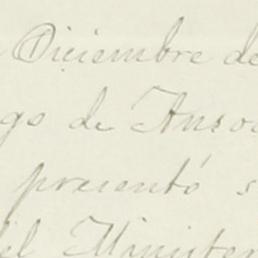 Diciembre de
go de Anso
presentó s
el Minister